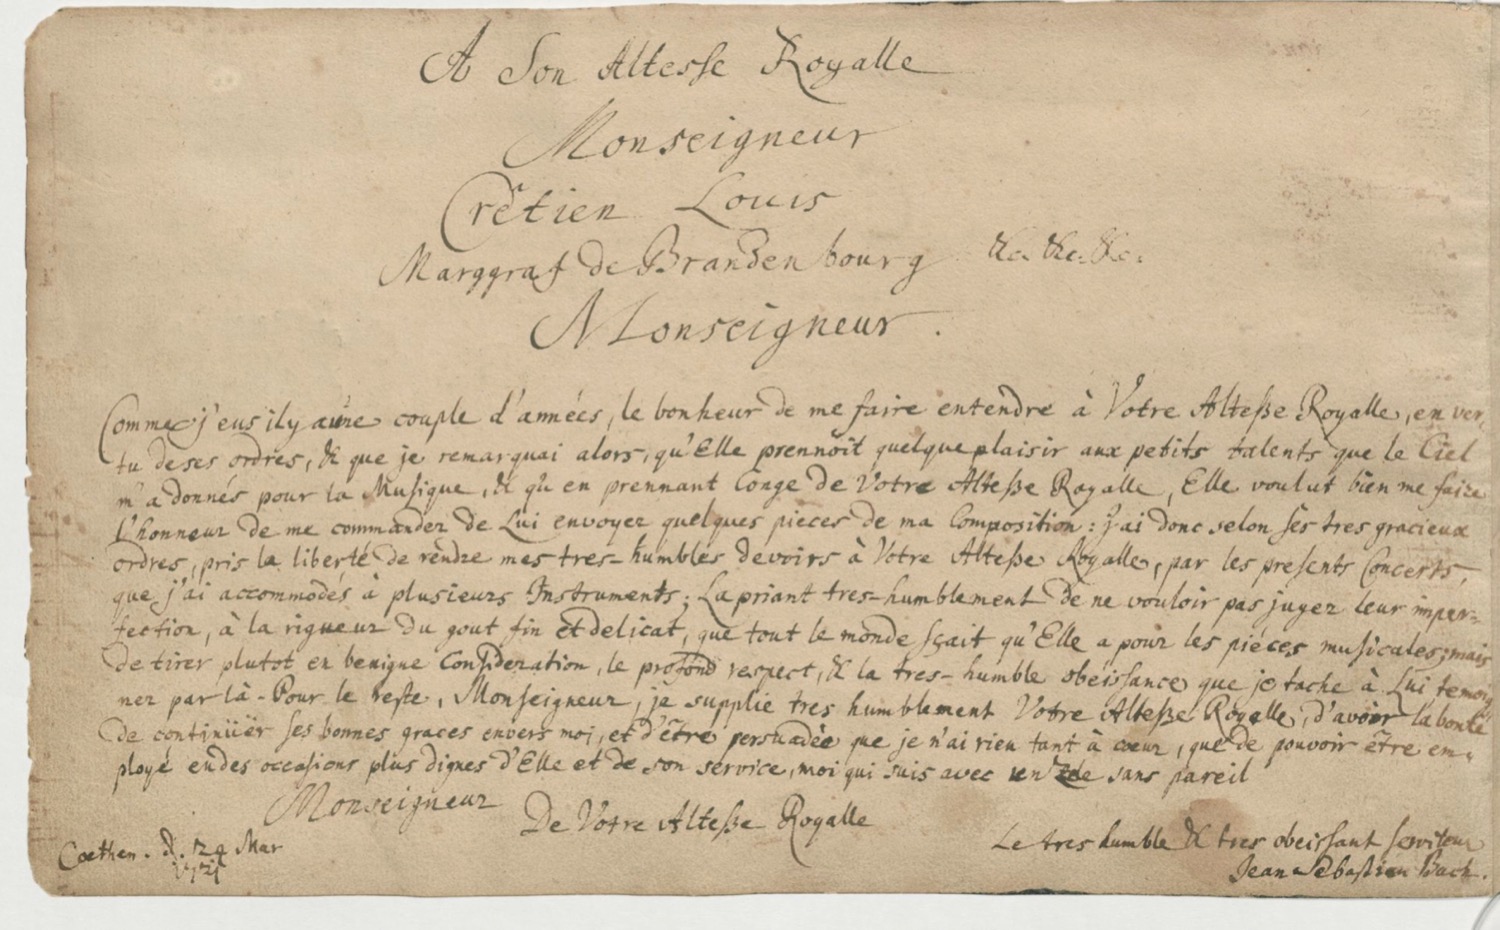 A Son Altesse Royalle
Monseigneur
Crêtien Louis
Marggraf de Brandenbourg &c. &c. &c.
Monseigneur.
Comme j'eus il y a une couple d'années, le bonheur de me faire entendre à Votre Alteße Royalle, en ver-
tu de ses ordres, & que je remarquai alors, qu'Elle prennoit quelque plaisir aux petits talents que le Ciel
m'a donnés pour la Musique, & qu'en prennant Conge de Votre Alteße Royalle, Elle voulut bien me faire
l'honneur de me commander de Lui envoyer quelques pieces de ma Composition: j'ai donc selon ses tres gracieux
ordres, pris la liberté de rendre mes tres-humbles devoirs à Votre Alteße Royalle, par les presents Concerts,
que j'ai accommodés à plusieurs Instruments; La priant tres-humblement de ne vouloir pas juger leur imper-
fection, à la rigueur du gout fin et delicat, que tout le monde sçait qu'Elle a pour les piéces musicales; mais
de tirer plutot en benigne Consideration, le profond respect, & la tres-humble obéissance que je tache à Lui temoig
ner par là. Pour le reste, Monseigneur, je supplie tres humblement Votre Alteße Royalle, d'avoir la bonté
de continüer ses bonnes graces envers moi, et d'être persuadèe que je n'ai rien tant à coeur, que de pouvoir être em-
ployé en des occasions plus dignes d'Elle et de son service, moi qui suis avec un zele sans pareil
Monseigneur
De Votre Alteße Royalle
Coethen. d. 24 Mar
1721
Le tres humble & tres obeissant serviteur
Jean Sebastien Bach.